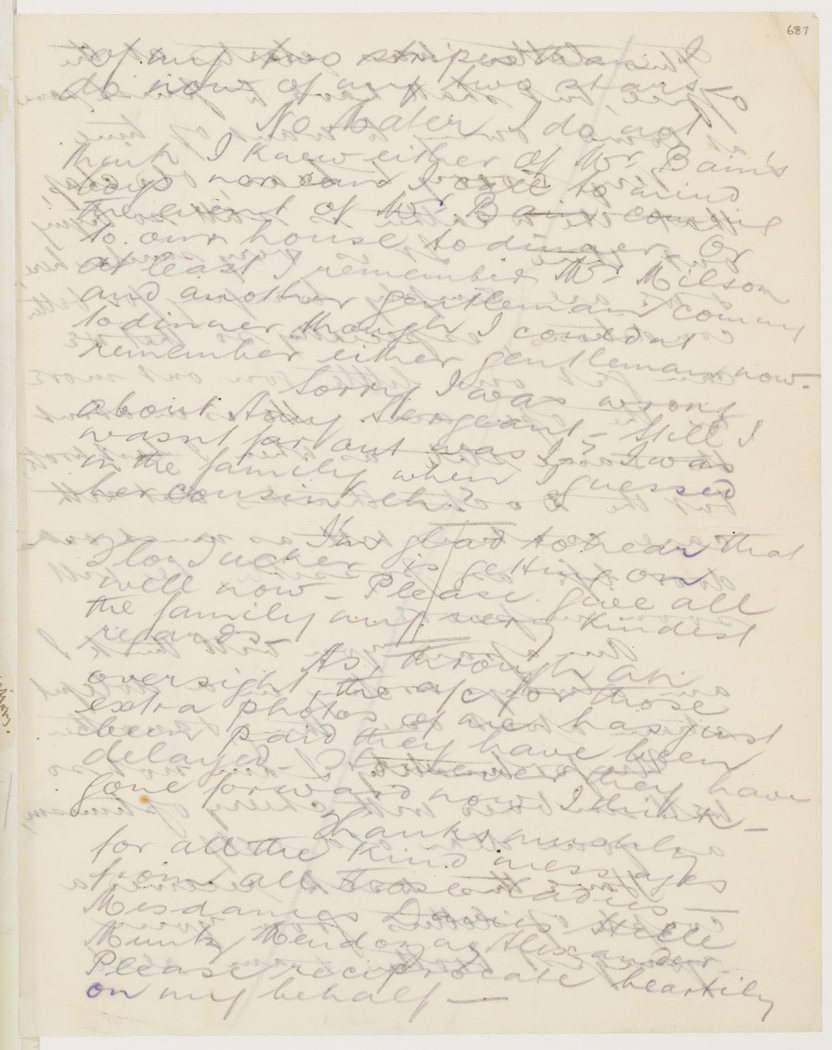 687
of my two stripes than I
do now of my two stars—
No Mater I do not
think I knew either of Mr. Bain's
boys nor can I call to mind
the event of Mr. Bain coming
to our house to dinner. Or
at least I remember Mr Milson
and another gentleman coming
to dinner though I couldn't
remember either gentleman now.
Sorry I was wrong
about Amy Sergeant— Still I
wasn't far out was I? I was
in the family when I guessed
her cousin eh?
I'm glad to hear that
Floss Tucker is getting on
well now— Please give all
the family my very kindest
regards—
As through an
oversight the a/c for those
extra photos of me has just
been paid they have been
delayed. However they have
gone forward now I think—
Thanks muchly
for all the kind messages
from all those ladies—
Mesdames Doothie Stelle
Muntz Mendoza Alexander
Please reciprocate heartily
on my behalf—